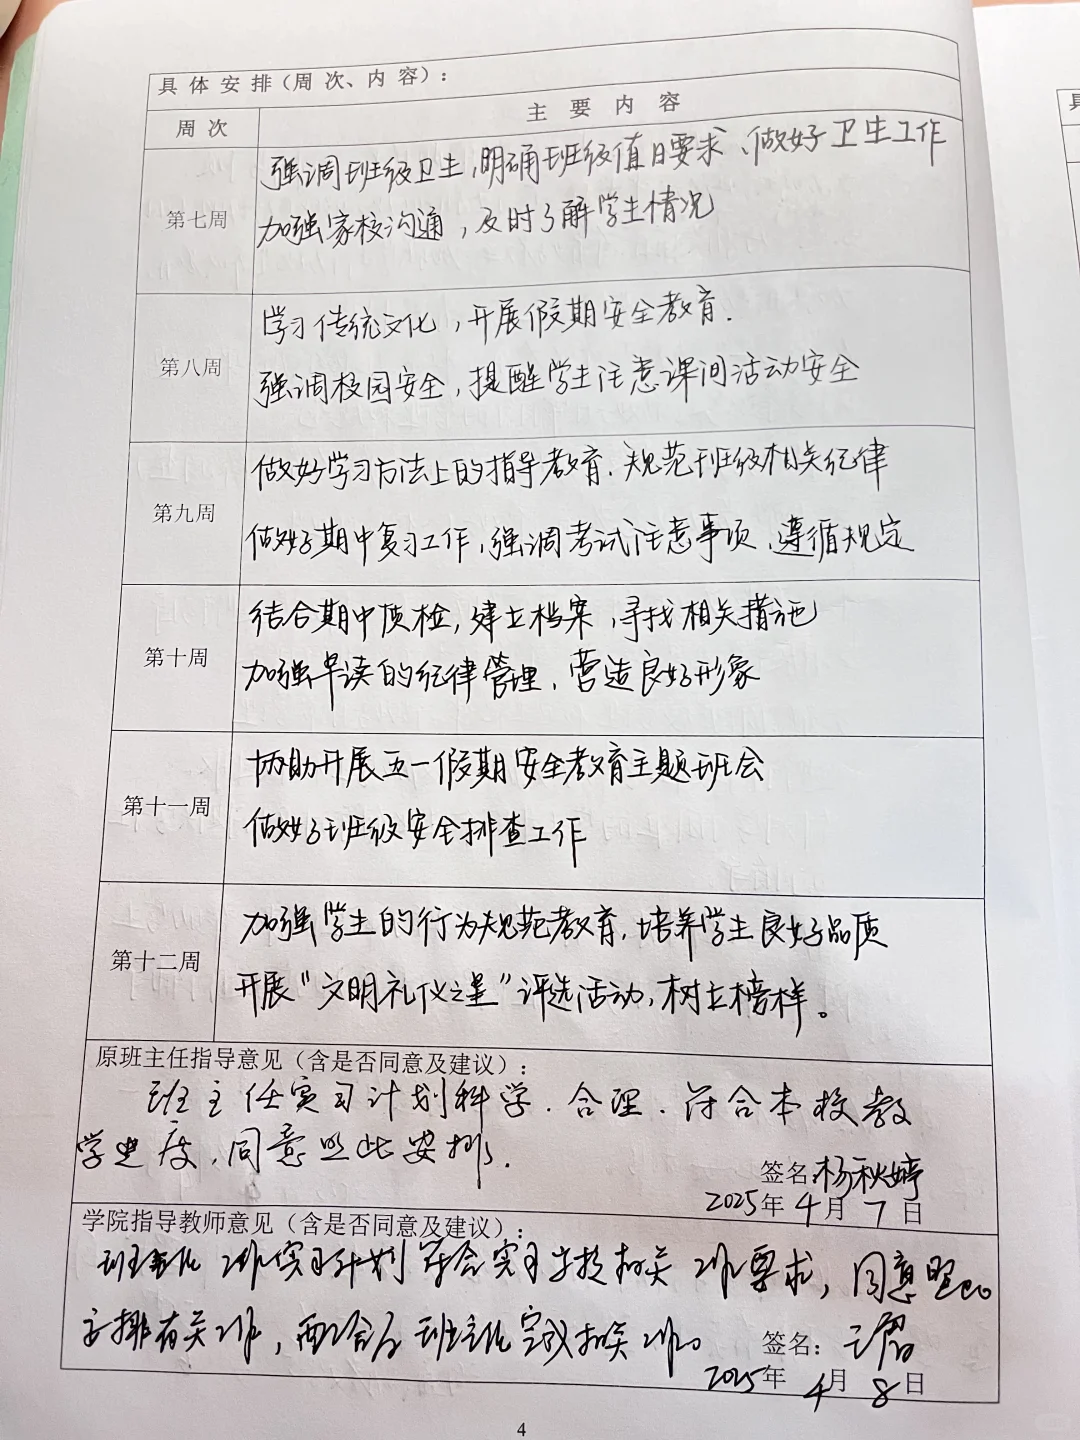 具体安排（周次、内容）：
周次 主要内容
第七周
强调班级卫生，明确班级值日要求、做好卫生工作
加强家校沟通，及时了解学生情况
第八周
学习传统文化，开展假期安全教育．
强调校园安全，提醒学生注意课间活动安全
第九周
做好学习方法上的指导教育．规范班级相关纪律
做好期中复习工作，强调考试注意事项、遵循规定
第十周
结合期中质检，建立档案，寻找相关措施
加强早读的纪律管理、营造良好形象
第十一周
协助开展五一假期安全教育主题班会
做好班级安全排查工作
第十二周
加强学生的行为规范教育，培养学生良好品质
开展“文明礼仪之星”评选活动，树立榜样。
原班主任指导意见（含是否同意及建议）：
班主任实习计划科学．合理．符合本校教
学进度，同意照此安排．
签名：杨秋婷
2025年4月7日
学院指导教师意见（含是否同意及建议）：
班主任工作实习计划符合实习学校相关工作要求，同意照此
安排有关工作，配合原班主任完成相关工作。
签名：
2025年4月8日
4